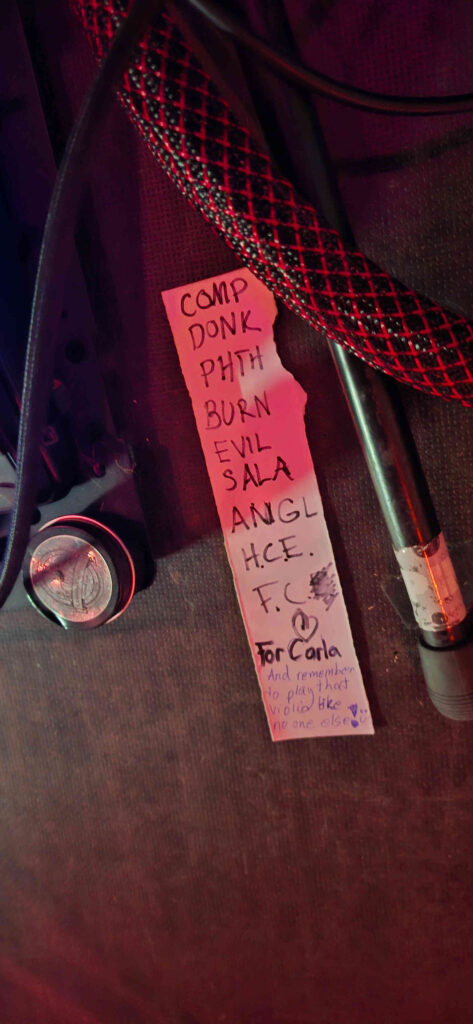 COMP
DONK
PHTH
BURN
EVIL
SALA
ANGL
H.C.E.
F.C
For Carla
And remember
to play that
violin like
no one else!